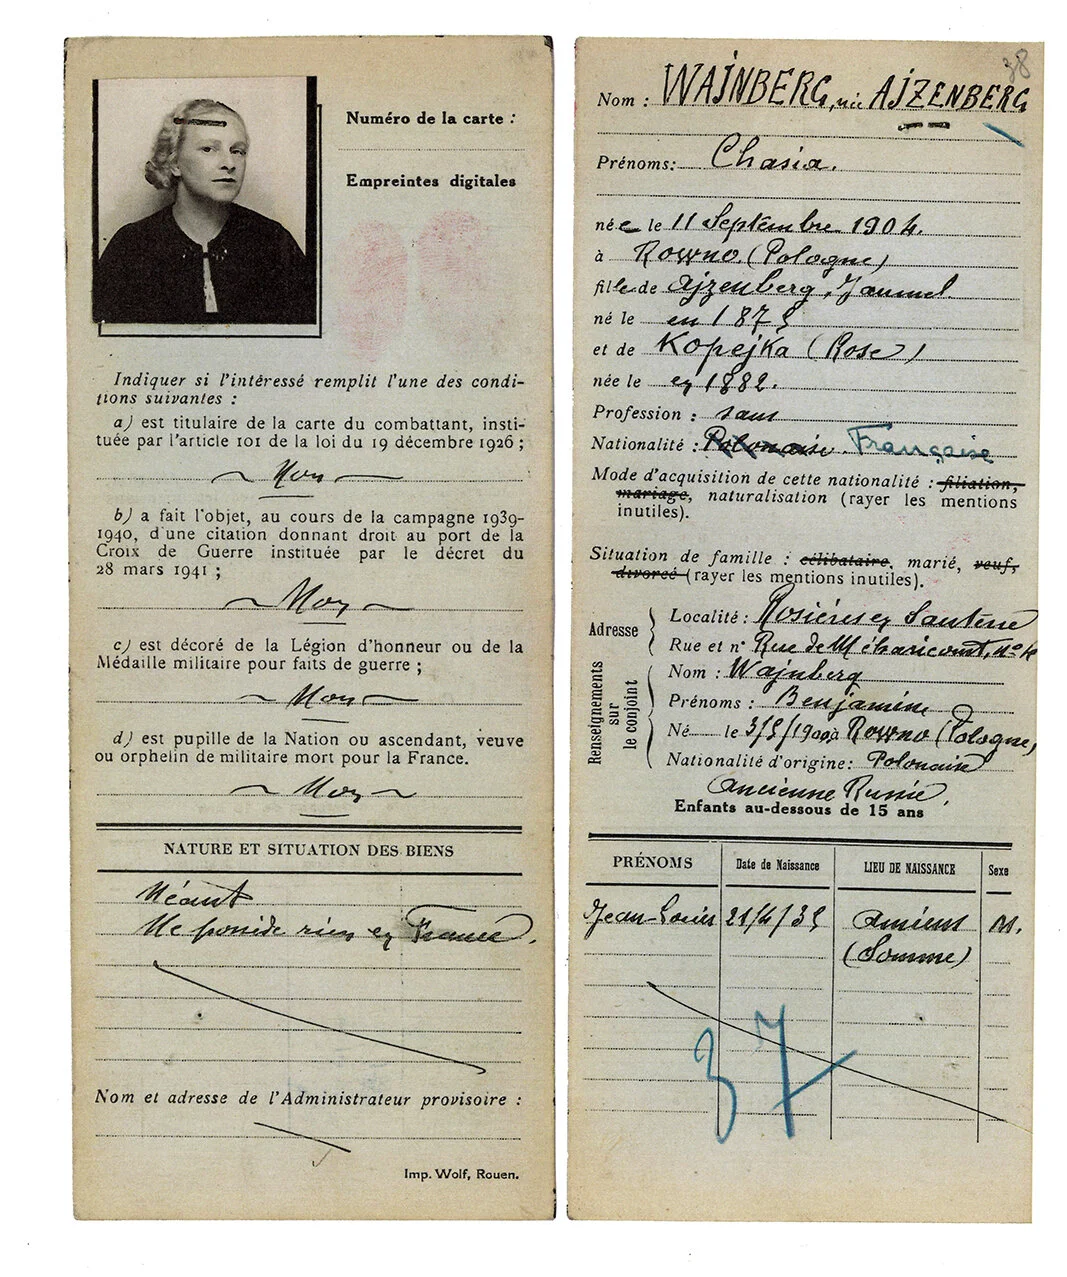 Numéro de la carte :
Empreintes digitales
Indiquer si l'intéressé remplit l'une des condi-
tions suivantes :
a) est titulaire de la carte du combattant, insti-
tuée par l'article 101 de la loi du 19 décembre 1926 ;
Non
b) a fait l'objet, au cours de la campagne 1939-
1940, d'une citation donnant droit au port de la
Croix de Guerre instituée par le décret du
28 mars 1941 ;
Non
c) est décoré de la Légion d'honneur ou de la
Médaille militaire pour faits de guerre ;
Non
d) est pupille de la Nation ou ascendant, veuve
ou orphelin de militaire mort pour la France.
Non
NATURE ET SITUATION DES BIENS
Néant
Ne possède rien en France.
Nom et adresse de l'Administrateur provisoire :
Imp. Wolf, Rouen.
38
Nom : WAJNBERG, née AJZENBERG
Prénoms: Chasia.
née le 11 Septembre 1904.
à Rowno (Pologne)
fille de Ajzenberg,
né le en 1875
et de Kopejka (Rose)
née le en 1882.
Profession : sans
Nationalité : Polonaise. Française
Mode d'acquisition de cette nationalité : filiation,
mariage, naturalisation (rayer les mentions
inutiles).
Situation de famille : célibataire, marié, veuf,
divorcé (rayer les mentions inutiles).
Adresse
Localité : Rosières en Santerre
Rue et n° Rue de Méharicourt, n° 4
Renseignements sur le conjoint
Nom : Wajnberg
Prénoms : Benjamin
Né le 3/5/1900 à Rowno (Pologne)
Nationalité d'origine: Polonaise
Ancienne Russie.
Enfants au-dessous de 15 ans
PRÉNOMS Date de Naissance LIEU DE NAISSANCE Sexe
Jean-Louis 21/4/35 Amiens M.
(Somme)
37